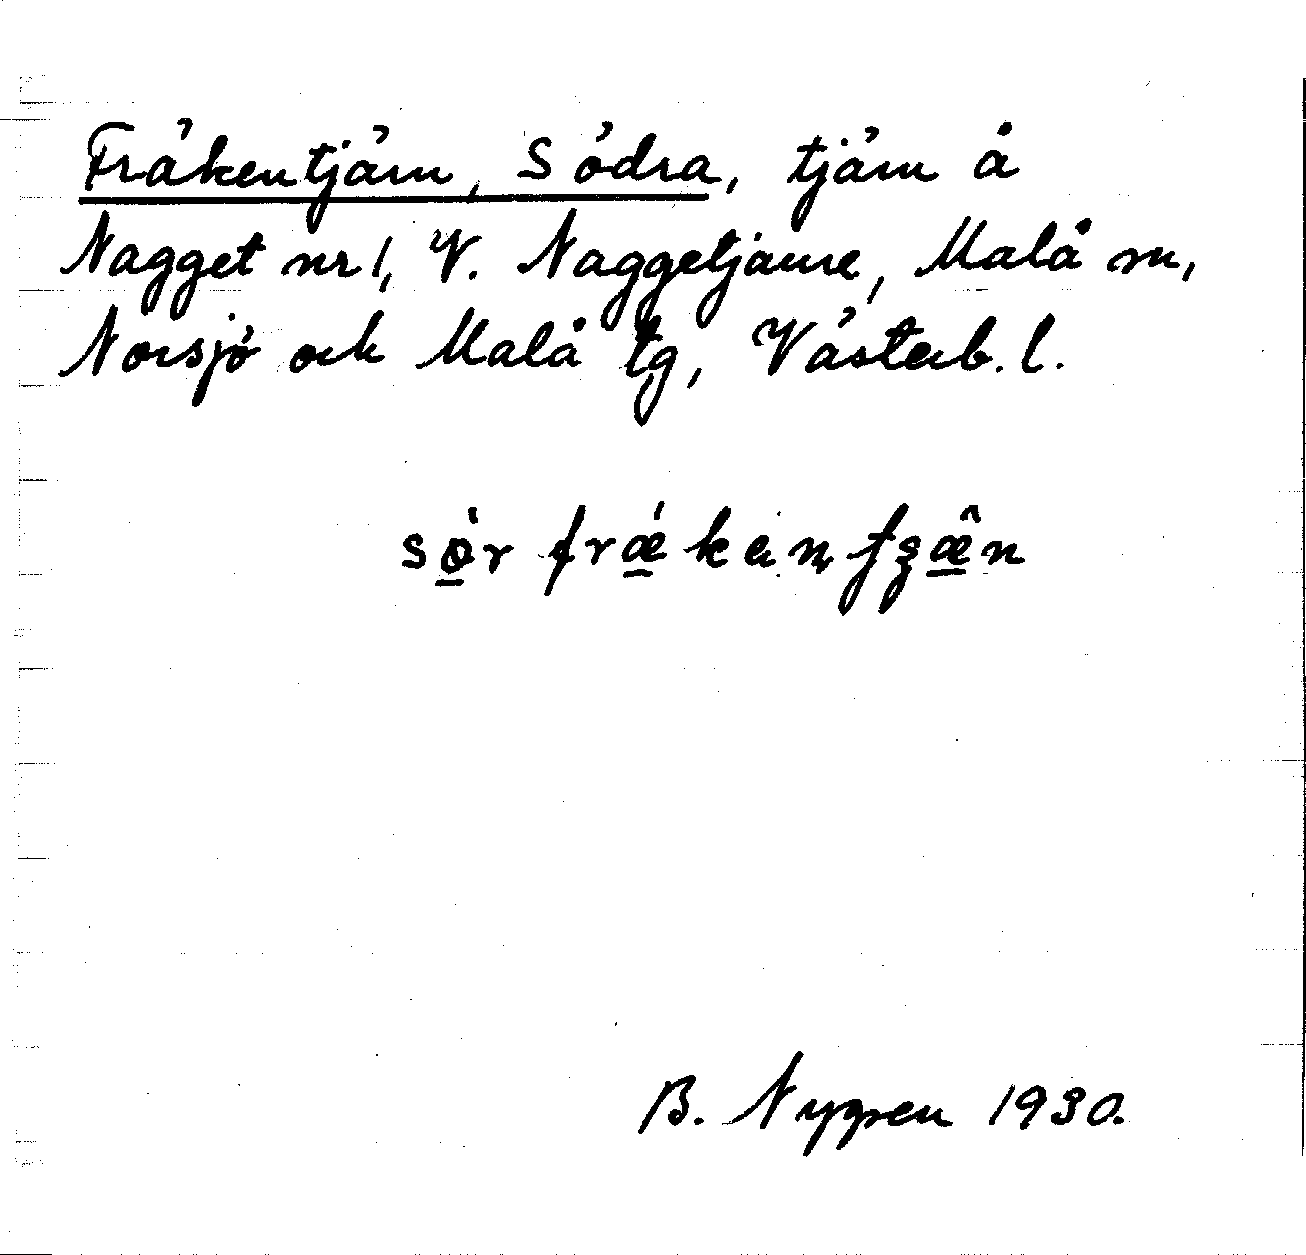 Fräkentjärn, Södra, tjärn å
Nagget nr 1, V. Naggetjaure, Malå sn,
Norsjö och Malå tg, Västerb. l.
sø̀r frǽkenfʒæ̂n
B. Nygren 1930.